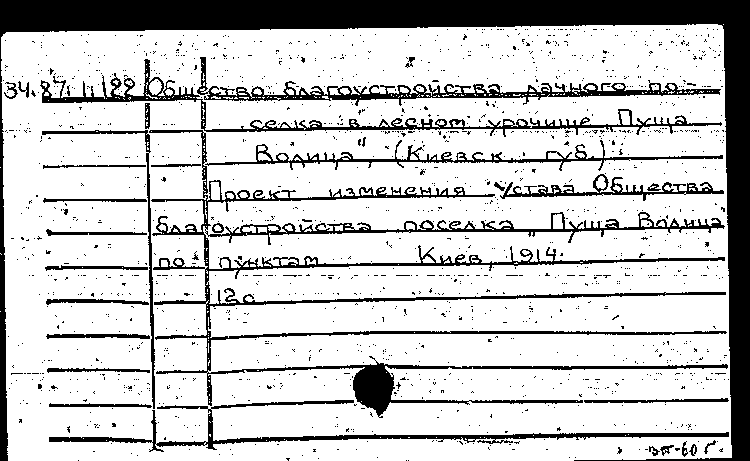 34.87.1.122 Общество благоустройства дачного по-
селка в лесном урочище „Пуща
Водица", (Киевск. губ.).
Проект изменения Устава Общества
благоустройства поселка „Пуща Водица"
по пунктам. Киев, 1914.
12с.